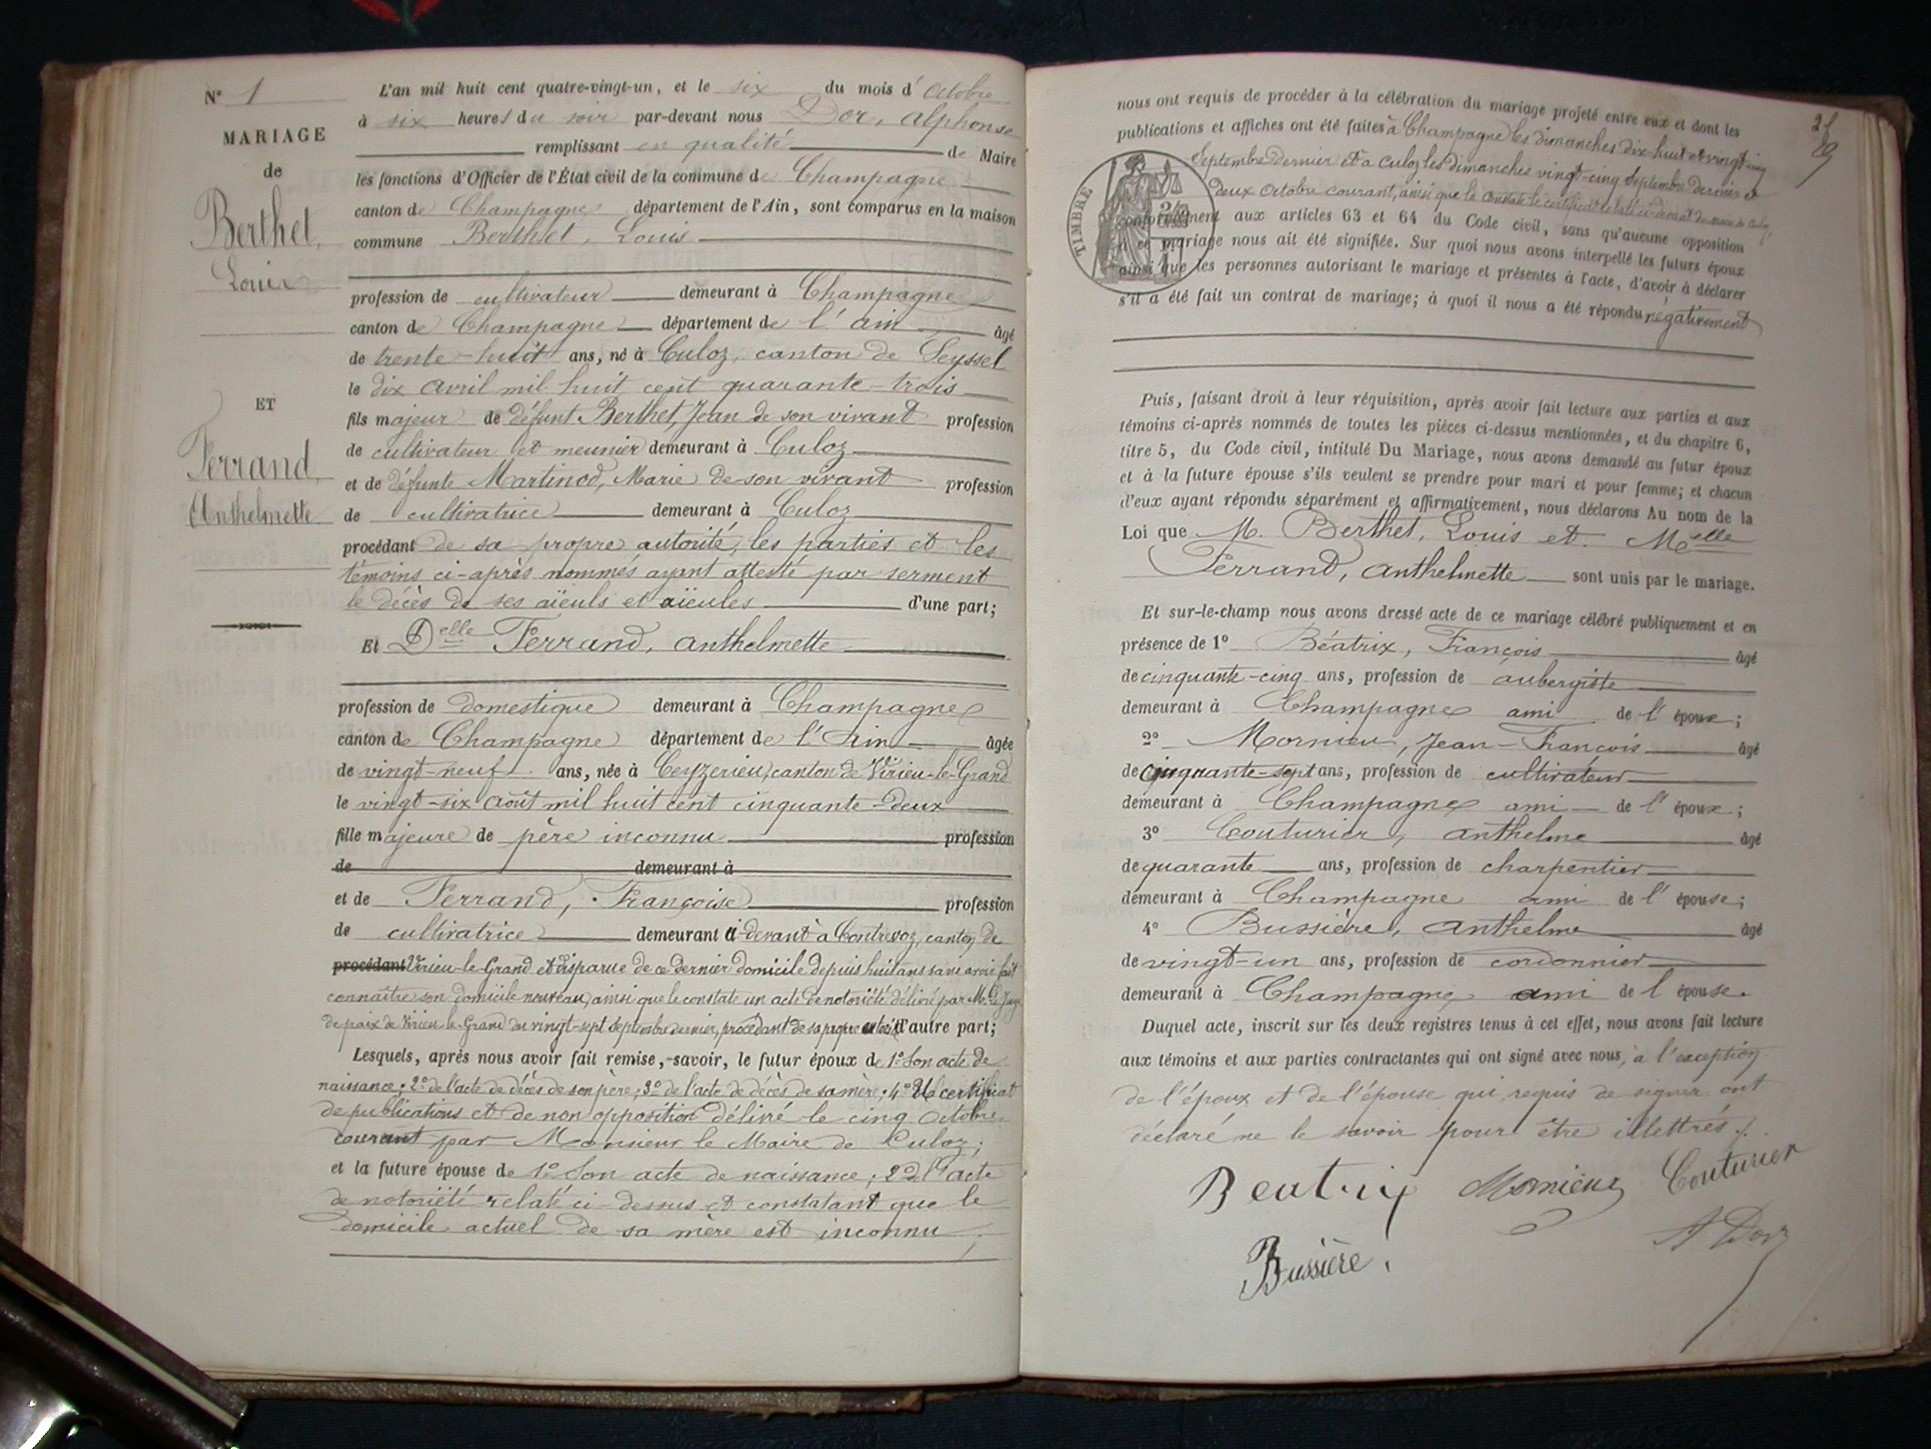 N° 1
MARIAGE
de
Berthet,
Louis
ET
Ferrand,
Anthelmette
L'an mil huit cent quatre-vingt-un, et le six du mois d'octobre
à six heures du soir par-devant nous Dor, Alphonse
remplissant en qualité de Maire
les fonctions d'Officier de l'État civil de la commune de Champagne
canton de Champagne département de l'Ain, sont comparus en la maison
commune Berthet, Louis
profession de cultivateur demeurant à Champagne
canton de Champagne département de l'ain âgé
de trente-huit ans, né à Culoz, canton de Seyssel
le dix avril mil huit cent quarante-trois
fils majeur de défunt Berthet, Jean de son vivant profession
de cultivateur et meunier demeurant à Culoz
et de défunte Martinod, Marie de son vivant profession
de cultivatrice demeurant à Culoz
procédant de sa propre autorité, les parties et les
témoins ci-après nommés ayant attesté par serment
le décès de ses aïeuls et aïeules d'une part;
Et Delle Ferrand, anthelmette
profession de domestique demeurant à Champagne
canton de Champagne département de l'Ain âgée
de vingt-neuf ans, née à Ceyzerieu, canton de Virieu-le-Grand
le vingt-six août mil huit cent cinquante-deux
fille majeure de père inconnu profession
de demeurant à
et de Ferrand, Françoise profession
de cultivatrice demeurant ci-devant à Contrevoz, canton de
procédant Virieu-le-Grand et disparue de ce dernier domicile depuis huit ans sans avoir fait
connaître son domicile nouveau, ainsi que le constate un acte de notoriété délivré par M. le Juge
de paix de Virieu-le-Grand du vingt-sept septembre dernier, procédant de sa propre autorité d'autre part;
Lesquels, après nous avoir fait remise, -savoir, le futur époux de 1° Son acte de
naissance; 2° de l'acte de décès de son père; 3° de l'acte de décès de sa mère; 4° Un certificat
de publications et de non opposition délivré le cinq octobre
courant par Monsieur le Maire de Culoz;
et la future épouse de 1° Son acte de naissance; 2° de l'acte
de notoriété relaté ci-dessus et constatant que le
domicile actuel de sa mère est inconnu;
nous ont requis de procéder à la célébration du mariage projeté entre eux et dont les
publications et affiches ont été faites à Champagne les dimanches dix-huit et vingt-cinq
Septembre dernier et à Culoz les dimanches vingt-cinq septembre dernier et
deux octobre courant, ainsi que le constate le certificat relaté ci-devant du maire de Culoz,
TIMBRE
conformément aux articles 63 et 64 du Code civil, sans qu'aucune opposition
à ce mariage nous ait été signifiée. Sur quoi nous avons interpellé les futurs époux
ainsi que les personnes autorisant le mariage et présentes à l'acte, d'avoir à déclarer
s'il a été fait un contrat de mariage; à quoi il nous a été répondu négativement
Puis, faisant droit à leur réquisition, après avoir fait lecture aux parties et aux
témoins ci-après nommés de toutes les pièces ci-dessus mentionnées, et du chapitre 6,
titre 5, du Code civil, intitulé Du Mariage, nous avons demandé au futur époux
et à la future épouse s'ils veulent se prendre pour mari et pour femme; et chacun
d'eux ayant répondu séparément et affirmativement, nous déclarons Au nom de la
Loi que M. Berthet, Louis et Melle
Ferrand, Anthelmette sont unis par le mariage.
Et sur-le-champ nous avons dressé acte de ce mariage célébré publiquement et en
présence de 1° Béatrix, François âgé
de cinquante-cinq ans, profession de aubergiste
demeurant à Champagne ami de l'époux;
2° Mornieu, Jean-François âgé
de cinquante-sept ans, profession de cultivateur
demeurant à Champagne ami de l'époux;
3° Couturier, Anthelme âgé
de quarante ans, profession de charpentier
demeurant à Champagne ami de l'épouse;
4° Bussière, Anthelme âgé
de vingt-un ans, profession de cordonnier
demeurant à Champagne ami de l'épouse.
Duquel acte, inscrit sur les deux registres tenus à cet effet, nous avons fait lecture
aux témoins et aux parties contractantes qui ont signé avec nous, à l'exception
de l'époux et de l'épouse qui, requis de signer ont
déclaré ne le savoir pour être illettrés.
Beatrix Mornieux Couturier
A Dor
Bussière.